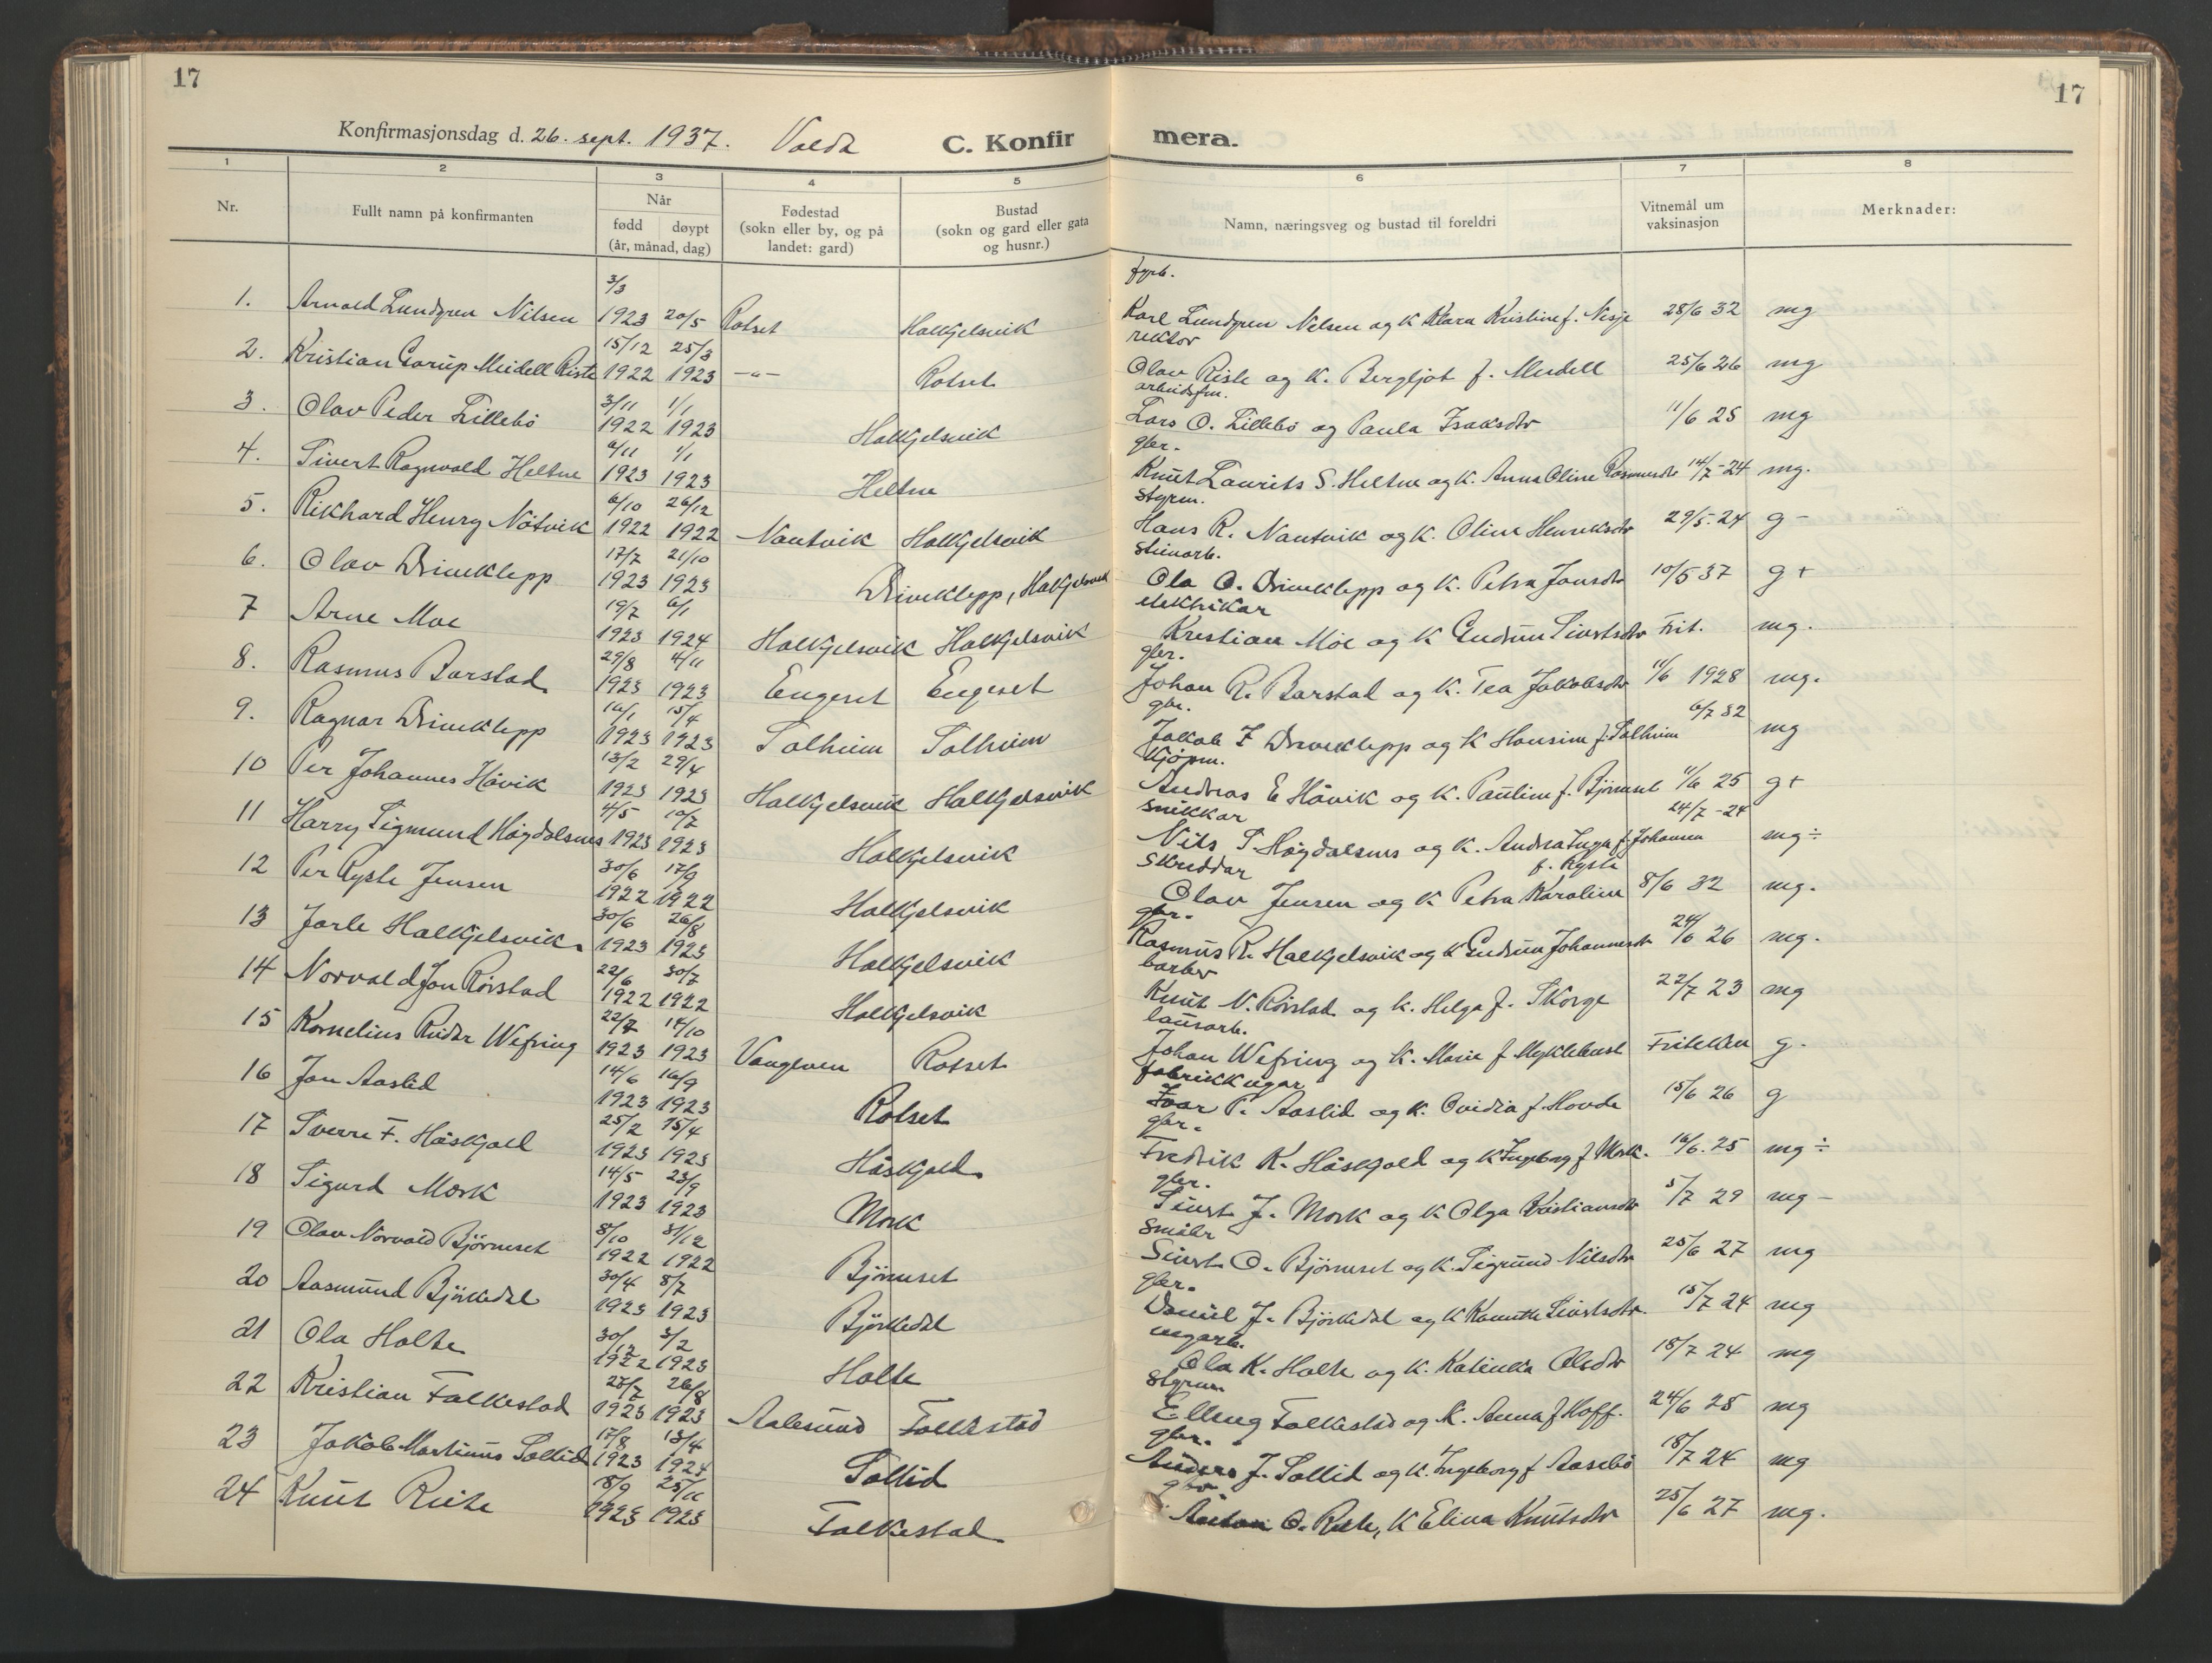 17
17
Konfirmasjonsdag d. 26. sept. 1937. Volda C. Konfirmera.
1 2 3 4 5 6 7 8
Nr. Fullt namn på konfirmanten Når fødd døypt (år, månad, dag) Fødestad (sokn eller by, og på landet: gard) Bustad (sokn og gard eller gata og husnr.) Namn, næringsveg og bustad til foreldri Vitnemål um vaksinasjon Merknader:
3/3 fyrb.
1. Arnold Lundgren Nilsen 1923 20/5 Rotset Halkjelsvik Karl Lundgren Nilsen og K Klara Kristine f. Nesje 28/6 32 mg
15/12 25/3 rektor
2. Kristian Garup Meidell Riste 1922 1923 —"— Rotset Olav Riste og K. Bergljot f. Meidell 25/6 26 mg
3/11 1/1 arbeidsfm.
3. Olav Peder Lillebö 1922 1923 Halkjelsvik Lars O. Lillebö og Paula Isaksdtr 11/6 25 mg
6/11 1/1 gbr.
4. Sivert Ragnvald Heltne 1923 1923 Heltne Knut Laurits S. Heltne og K. Anna Oline Rasmusdtr 14/7 -24 mg.
6/10 26/12 styrm.
5. Rikhard Henry Nötvik 1922 1922 Nautvik Halkjelsvik Hans R. Nautvik og K. Oline Henriksdtr 29/5.24 g -
17/7 21/10 steinarb.
6. Olav Driveklepp 1923 1923 Driveklepp, Halkjelsvik Ola O. Driveklepp og K. Petra Jonsdtr 10/5 37 g +
19/7 6/1 elektrikar
7 Arne Moe 1923 1924 Halkjelsvik Halkjelsvik Kristian Moe og K Gudrun Sivertsdtr Frit. mg.
29/8 4/11 gbr.
8. Rasmus Barstad 1923 1923 Engeset Engeset Johan R. Barstad og K. Tea Jakobsdtr 11/6 1928 mg.
16/1 15/4 gbr.
9. Ragnar Driveklepp 1923 1923 Solheim Solheim Jakob I Driveklepp og K Hansine f. Solheim 6/7 32 mg
13/2 29/4 Kjöpm.
10 Per Johannes Håvik 1923 1923 Halkjelsvik Halkjelsvik Andreas E Håvik og K. Pauline f. Björneset 11/6 25 g+
4/5 10/7 snikkar
11 Harry Sigmund Høgdalsnes 1923 1923 Halkjelsvik Nils S Høgdalsnes og K. Andrea Inga f. Johansen 24/7 -24 mg ÷
30/6 17/9 Skreddar f. Ryste
12 Per Ryste Jensen 1922 1922 Halkjelsvik Olav Jensen og K Petra Karoline 8/6 32 mg.
30/6 26/8 gbr.
13 Jarle Halkjelsvik 1923 1923 Halkjelsvik Rasmus R. Halkjelsvik og K Gudrun Johannesdtr 24/6 26 mg.
22/6 30/7 barber
14 Norvald Jon Rörstad 1922 1922 Halkjelsvik Knut N. Rörstad og K. Helga f. Skorge 22/7 23 mg
22/7 14/10 lausarb.
15 Kornelius Reidar Wefring 1923 1923 Vanylven Rotset Johan Wefring og K. Marie f Myklebust Friteken g.
14/6 16/9 fabrikkeigar
16 Jon Aaslid 1923 1923 Rotset Ivar P. Aaslid og K. Ovidia f. Hovde 15/6 26 g
25/2 15/4 gbr.
17 Sverre F. Håskjold 1923 1923 Håskjold Fredrik K. Håskjold og K Ingeborg f Mork. 16/6.25 mg ÷
14/5 23/9 gbr.
18 Sigurd Mork 1923 1923 Mork Sivert J. Mork og K Olga Kristiansdtr 5/7 29 mg -
8/10 31/12 Smålr
19 Olav Norvald Björneset 1922 1922 Björneset Sivert O. Björneset og K. Sigrund Nilsdtr 25/6 27 mg
30/4 8/7 gbr.
20 Aasmund Björkedal 1923 1923 Björkedal Daniel J. Björkedal og K Kanutte Sivertsdtr 15/7 24 mg
30/12 3/2 vegarb.
21 Ola Holte 1922 1923 Holte Ola K. Holte og K. Katinka Olsdtr 18/7 24 mg
28/7 26/8 styrm
22 Kristian Folkestad 1923 1923 Aalesund Folkestad Elling Folkestad og K. Anna f Hoff. 24/6 25 mg
17/8 13/4 gbr.
23 Jakob Martinus Sollid 1923 1924 Sollid Anders J. Sollid og K. Ingeborg f Aasebö 18/7 24 mg
18/9 25/11 gbr
24 Knut Reite 1923 1923 Folkestad Anton O. Reite, K Elina Knutsdtr 25/6 27 mg.